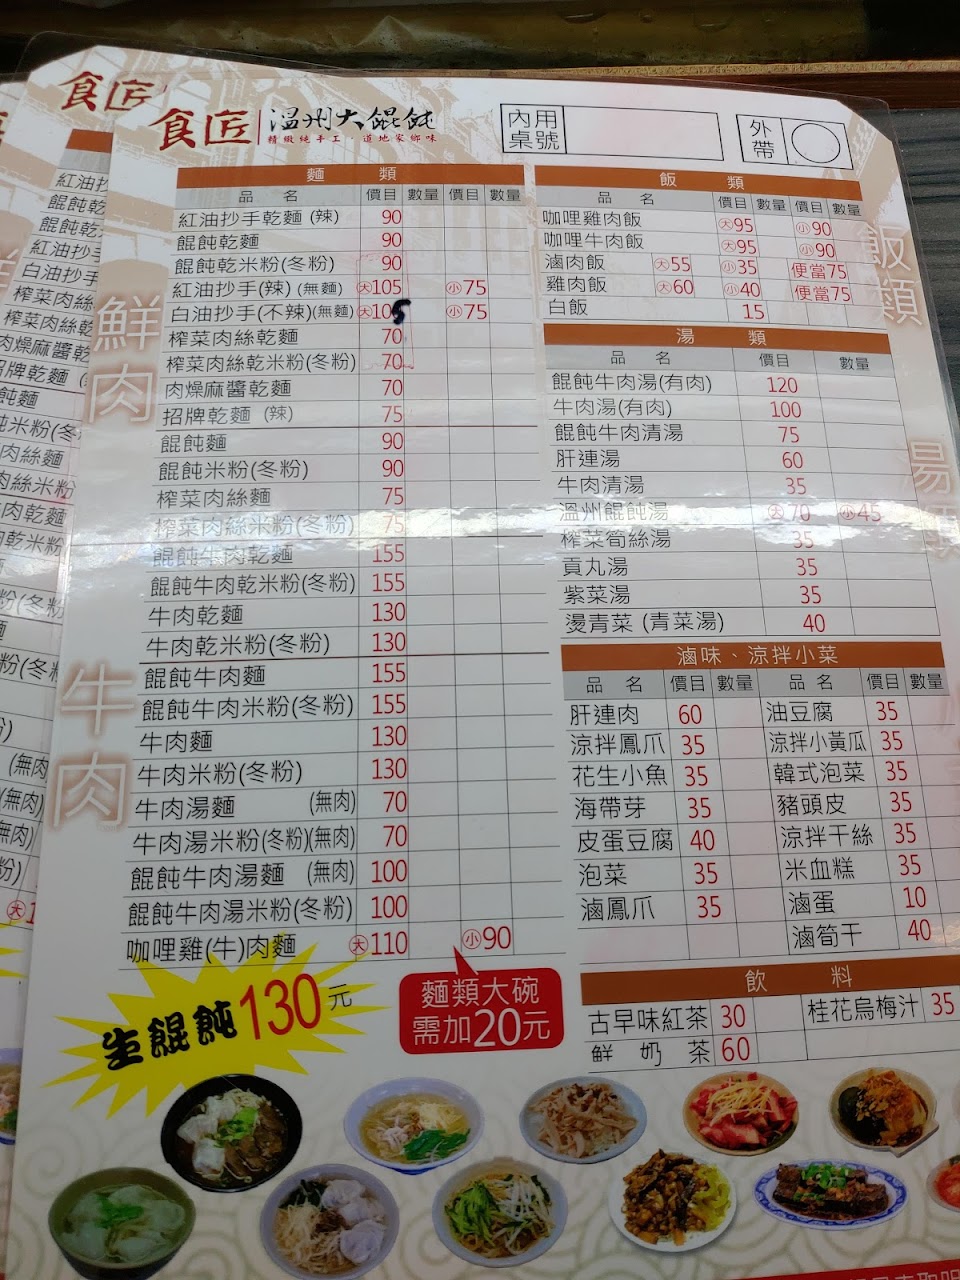 食匠
食匠 溫州大餛飩
精緻純手工．道地家鄉味
內用桌號
外帶
鮮肉
牛肉
麵 類
品 名 價目 數量 價目 數量
紅油抄手乾麵 (辣) 90
餛飩乾麵 90
餛飩乾米粉(冬粉) 90
紅油抄手(辣) (無麵) 大105 小75
白油抄手(不辣)(無麵) 大105 小75
榨菜肉絲乾麵 70
榨菜肉絲乾米粉(冬粉) 70
肉燥麻醬乾麵 70
招牌乾麵 (辣) 75
餛飩麵 90
餛飩米粉(冬粉) 90
榨菜肉絲麵 75
榨菜肉絲米粉(冬粉) 75
餛飩牛肉乾麵 155
餛飩牛肉乾米粉(冬粉) 155
牛肉乾麵 130
牛肉乾米粉(冬粉) 130
餛飩牛肉麵 155
餛飩牛肉米粉(冬粉) 155
牛肉麵 130
牛肉米粉(冬粉) 130
牛肉湯麵 (無肉) 70
牛肉湯米粉(冬粉)(無肉) 70
餛飩牛肉湯麵 (無肉) 100
餛飩牛肉湯米粉(冬粉) 100
咖哩雞(牛)肉麵 大110 小90
生餛飩130元
麵類大碗
需加20元
飯類
飯 類
品 名 價目 數量 價目 數量
咖哩雞肉飯 大95 小90
咖哩牛肉飯 大95 小90
滷肉飯 大55 小35 便當75
雞肉飯 大60 小40 便當75
白飯 15
湯 類
品 名 價目 數量
餛飩牛肉湯(有肉) 120
牛肉湯(有肉) 100
餛飩牛肉清湯 75
肝連湯 60
牛肉清湯 35
溫州餛飩湯 大70 小45
榨菜筍絲湯 35
貢丸湯 35
紫菜湯 35
燙青菜 (青菜湯) 40
滷味、涼拌小菜
品 名 價目 數量 品 名 價目 數量
肝連肉 60 油豆腐 35
涼拌鳳爪 35 涼拌小黃瓜 35
花生小魚 35 韓式泡菜 35
海帶芽 35 豬頭皮 35
皮蛋豆腐 40 涼拌干絲 35
泡菜 35 米血糕 35
滷鳳爪 35 滷蛋 10
滷筍干 40
飲 料
古早味紅茶 30 桂花烏梅汁 35
鮮 奶 茶 60